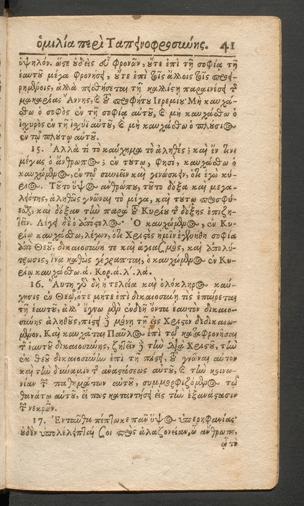 ὁμιλία περὶ Ταπεινοφροσύνης. 41
ὑψηλόν. ὥστε οὐδεὶς εὖ φρονῶν, οὔτε ἐπὶ τῇ σοφίᾳ τῇ
ἑαυτοῦ μέγα φρονήσει, οὔτε ἐπὶ τοῖς ἄλλοις τοῖς
ἀλλὰ πεισθήσεται τῇ καλλίστῃ παραινέσει τῆς
μακαρίας Ἄννης, καὶ τοῦ προφήτου Ἱερεμίου· Μὴ καυχά-
σθω ὁ σοφὸς ἐν τῇ σοφίᾳ αὐτοῦ, καὶ μὴ καυχάσθω ὁ
ἰσχυρὸς ἐν τῇ ἰσχύι αὐτοῦ, καὶ μὴ καυχάσθω ὁ πλούσιος
ἐν τῷ πλούτῳ αὐτοῦ.
15. Ἀλλὰ τί τὸ καύχημα τὸ ἀληθές; καὶ ἐν τίνι
μέγας ὁ ἄνθρωπος; ἐν τούτῳ, φησὶ, καυχάσθω ὁ
καυχώμενος, ἐν τῷ συνιεῖν καὶ γινώσκειν, ὅτι ἐγὼ κύ-
ριος. Τοῦτο ὕψος ἀνθρώπου, τοῦτο δόξα καὶ μεγα-
λειότης, ἀληθῶς γνῶναι τὸ μέγα, καὶ τούτῳ προσφύ-
εσθαι, καὶ δόξαν τὴν παρὰ τοῦ Κυρίου τῆς δόξης ἐπιζη-
τεῖν. Λέγει ὁ ἀπόστολος· Ὁ καυχώμενος, ἐν Κυ-
ρίῳ καυχάσθω, λέγων, ὅτι Χριστὸς ἡμῖν ἐγενήθη σοφία
ἀπὸ Θεοῦ, δικαιοσύνη τε καὶ ἁγιασμὸς, καὶ ἀπολύ-
τρωσις, ἵνα καθὼς γέγραπται, ὁ καυχώμενος ἐν Κυ-
ρίῳ καυχάσθω. α. Κορ. α. λ. λα.
16. Αὕτη γὰρ δὴ ἡ τελεία καὶ ὁλόκληρος καύ-
χησις ἐν Θεῷ, ὅτε μήτε ἐπὶ δικαιοσύνῃ τις ἐπαίρεται
τῇ ἑαυτοῦ, ἀλλ' ἔγνω μὲν ἐνδεῆ ὄντα ἑαυτὸν δικαιο-
σύνης ἀληθοῦς, πίστει δὲ μόνῃ τῇ εἰς Χριστὸν δεδικαιω-
μένον. Καὶ καυχᾶται Παῦλος ἐπὶ τῷ καταφρονῆσαι
τῆς ἑαυτοῦ δικαιοσύνης, ζητεῖν δὲ τὴν διὰ Χριστοῦ, τὴν
ἐκ Θεοῦ δικαιοσύνην ἐπὶ τῇ πίστει, τοῦ γνῶναι αὐτὸν
καὶ τὴν δύναμιν τῆς ἀναστάσεως αὐτοῦ, καὶ τὴν κοινω-
νίαν τῶν παθημάτων αὐτοῦ, συμμορφιζόμενος τῷ
θανάτῳ αὐτοῦ, εἴ πως καταντήσῃ εἰς τὴν ἐξανάστασιν
τῶν νεκρῶν.
17. Ἐνταῦθα πέπτωκε πᾶν ὕψος ὑπερηφανίας·
οὐδὲν ὑπολέλειπταί σοι πρὸς ἀλαζονείαν, ὦ ἄνθρωπε,